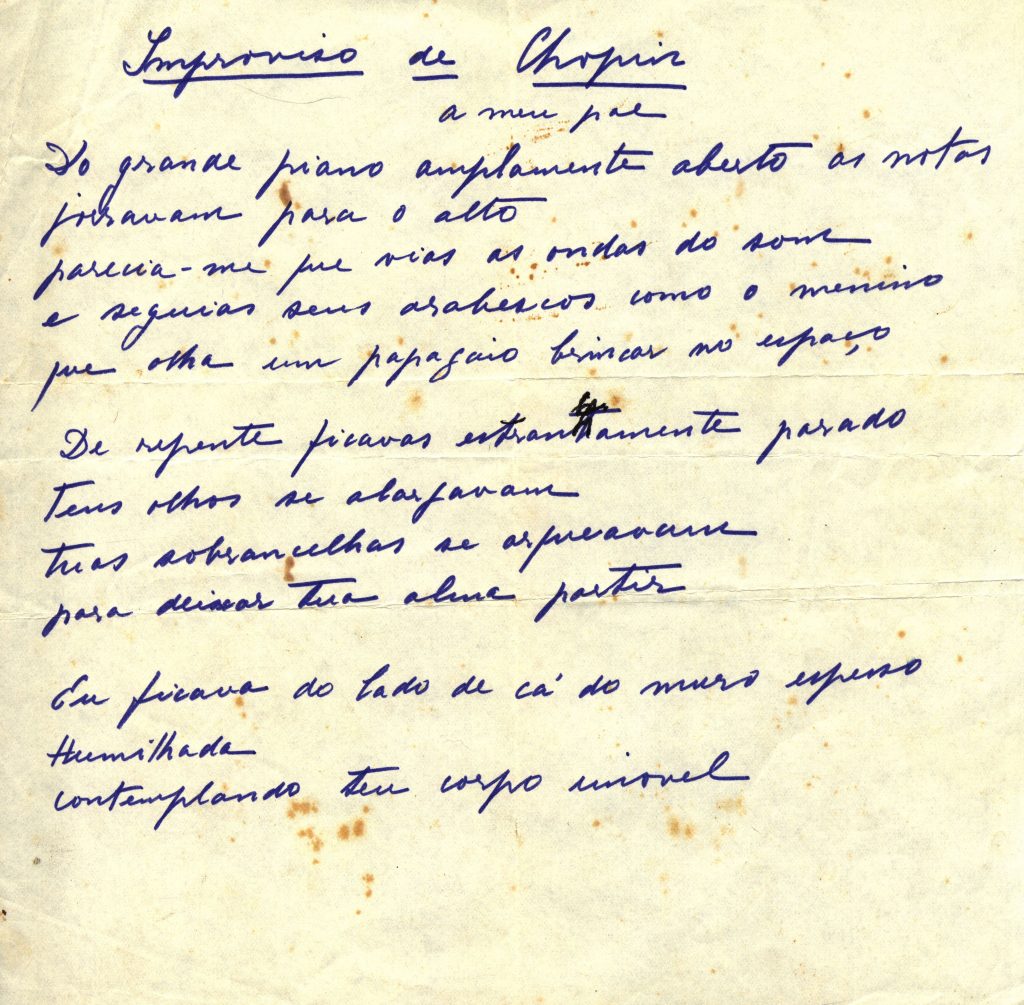 Improviso de Chopin
a meu pae
Do grande piano amplamente aberto as notas
jorravam para o alto
parecia-me que vias as ondas do som
e seguias seus arabescos como o menino
que olha um papagaio brincar no espaço
De repente ficavas estranhamente parado
teus olhos se alargavam
tuas sobrancelhas se arqueavam
para deixar tua alma partir
Eu ficava do lado de cá do muro espesso
Humilhada
contemplando teu corpo imovel